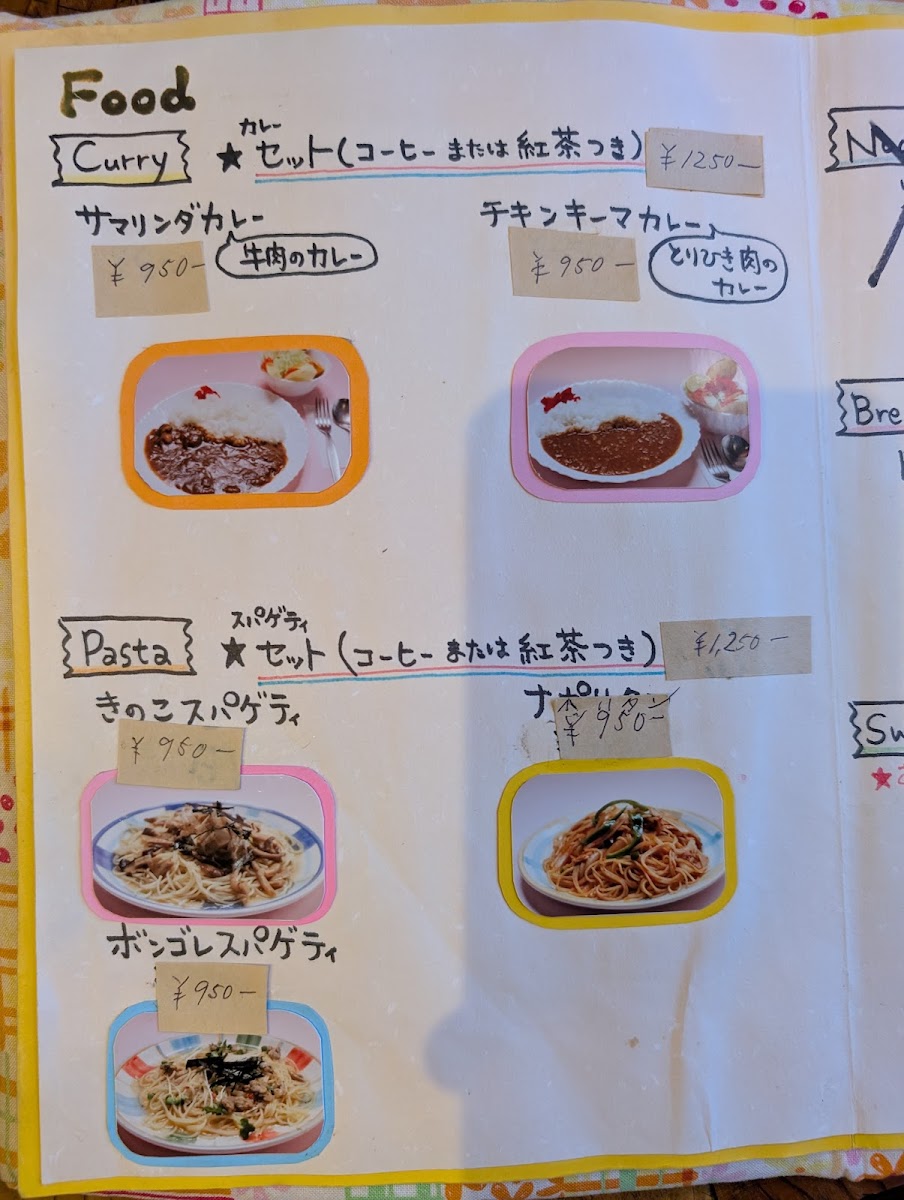 Food
Curry
カレー
★セット(コーヒーまたは紅茶つき) ¥1250-
サマリンダカレー
¥950-
牛肉のカレー
チキンキーマカレー
¥950-
とりひき肉の
カレー
Pasta
スパゲティ
★セット(コーヒーまたは紅茶つき) ¥1,250-
きのこスパゲティ
¥950-
ナポリタン
¥950-
ボンゴレスパゲティ
¥950-
Bre
Sw
★